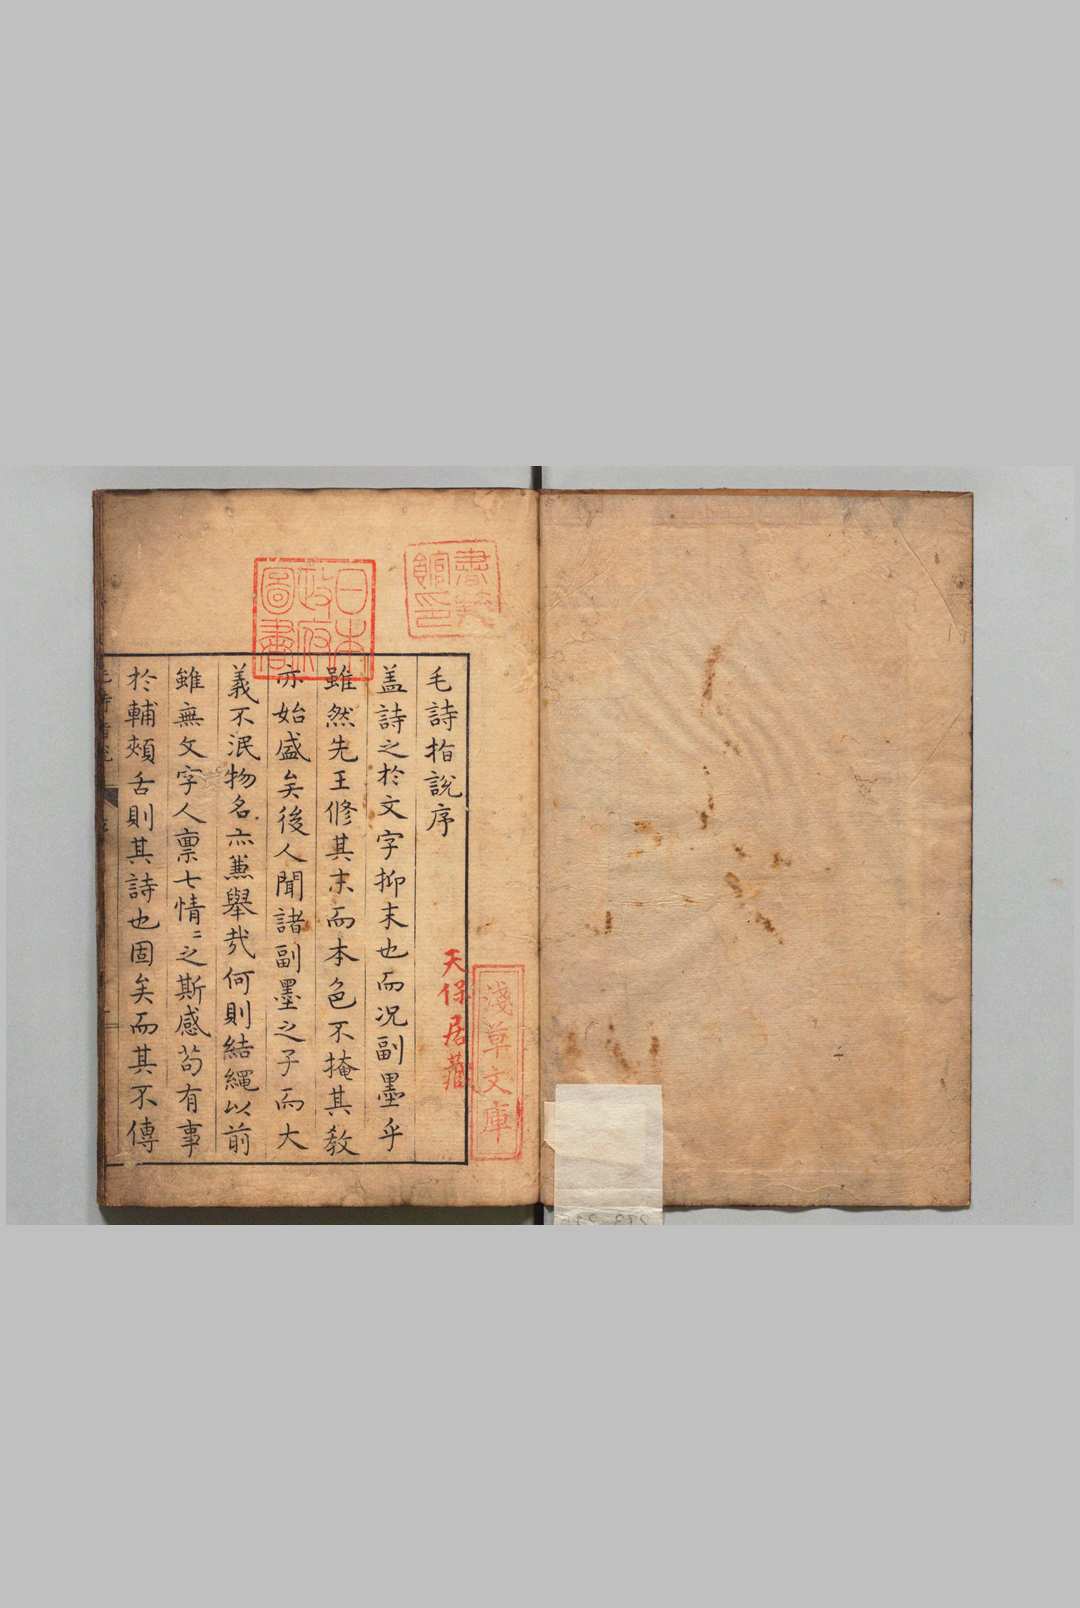 毛詩指說序
盖詩之於文字抑末也而况副墨乎
雖然先王修其末而本色不掩其教
亦始盛矣後人聞諸副墨之子而大
義不泯物名亦蕙舉哉何則結繩以前
雖無文字人禀七情〻之斯感苟有事
於輔頰舌則其詩也固矣而其不傳
日本政府圖書
淺草文庫
天保居藏